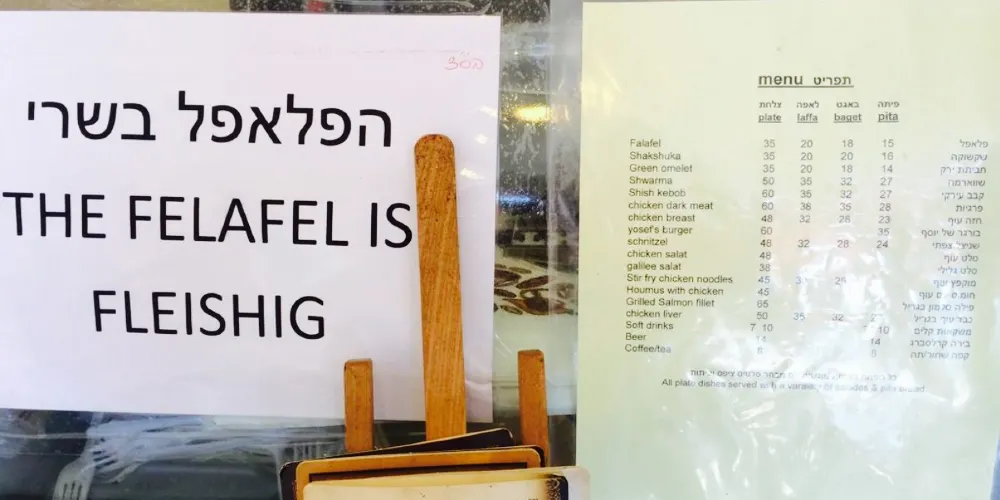 בס"ד
הפלאפל בשרי
THE FELAFEL IS
FLEISHIG
menu תפריט
צלחת לאפה באגט פיתה
plate laffa baget pita
Falafel 35 20 18 15 פלאפל
Shakshuka 35 20 20 16 שקשוקה
Green omelet 35 20 18 14 חביתת ירק
Shwarma 50 35 32 27 שווארמה
Shish kebob 60 35 32 27 קבב עירקי
chicken dark meat 60 38 35 28 פרגיות
chicken breast 48 32 28 23 חזה עוף
yosef's burger 60 35 בורגר של יוסף
schnitzel 48 32 28 24 שניצל צפתי
chicken salat 48 סלט עוף
galilee salat 38 סלט גלילי
Stir fry chicken noodles 45 מוקפץ עוף
Houmus with chicken 45 עוף
Grilled Salmon fillet 65 פילה סלמון בגריל
chicken liver 50 35 32 כבד עוף בגריל
Soft drinks 7 10 10 משקאות קלים
Beer 14 14 בירה קרלסברג
Coffee/tea 8 קפה שחור/תה
All plate dishes served with a of &